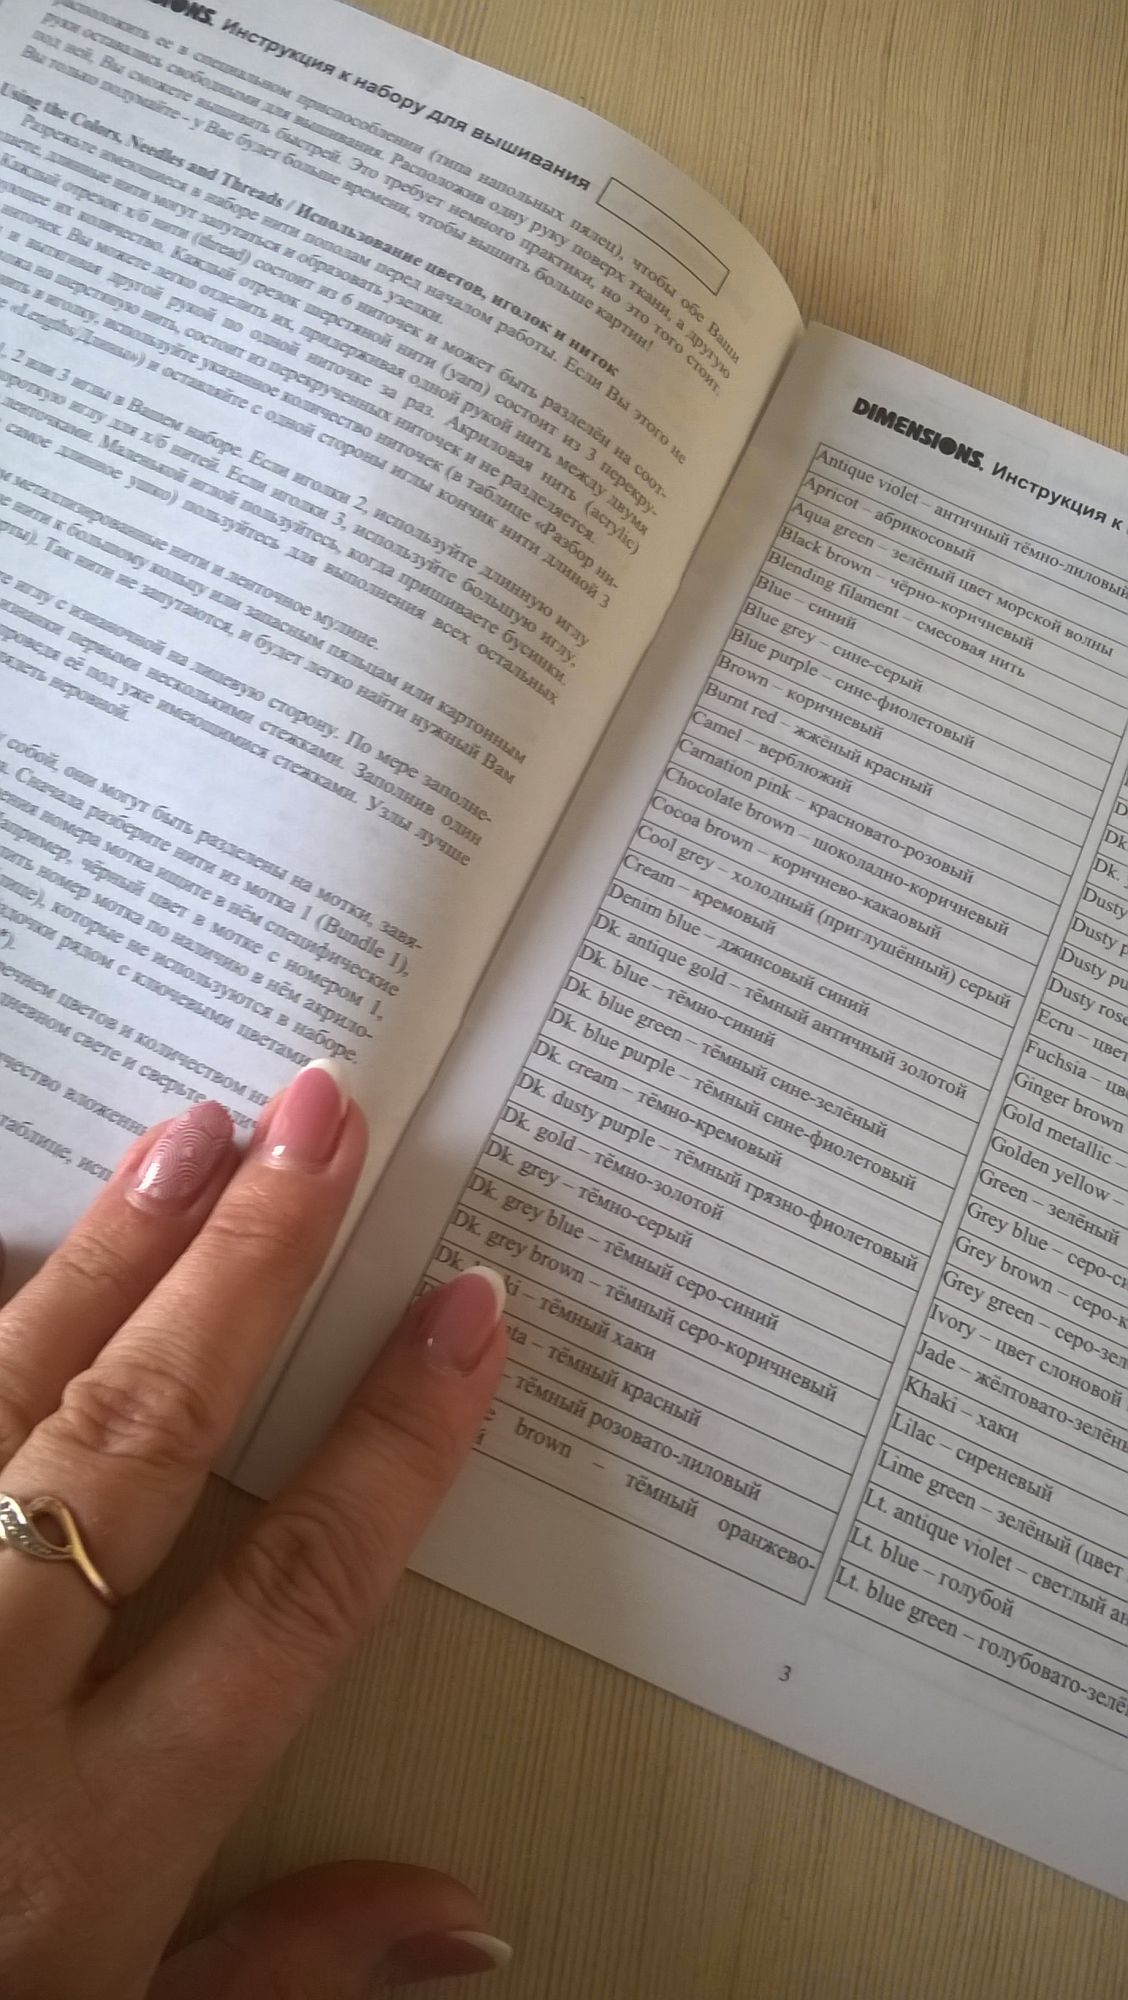 Инструкция к набору для вышивания
расположить ее в специальном приспособлении (типа напольных пялец), чтобы обе Ваши
руки оставались свободными для вышивания. Расположив одну руку поверх ткани, а другую
под ней, Вы сможете вышивать быстрей. Это требует немного практики, но это того стоит.
Вы только подумайте - у Вас будет больше времени, чтобы вышить больше картин!
Using the Colors, Needles and Threads / Использование цветов, иголок и ниток
Разрежьте имеющиеся в наборе нити пополам перед началом работы. Если Вы этого не
длинные нити могут запутаться и образовать узелки.
Каждый отрезок х/б нити (thread) состоит из 6 ниточек и может быть разделён на соот-
их количество. Каждый отрезок шерстяной нити (yarn) состоит из 3 перекру-
ниточек. Вы можете легко отделить их, придерживая одной рукой нить между двумя
и вытягивая другой рукой по одной ниточке за раз. Акриловая нить (acrylic)
на шерстяную нить, состоит из перекрученных ниточек и не разделяется.
в иголку, используйте указанное количество ниточек (в таблице «Разбор ни-
«Lengths/Длины») и оставляйте с одной стороны иглы кончик нити длиной 3
1, 2 или 3 иглы в Вашем наборе. Если иголки 2, используйте длинную иглу
короткую иглу для х/б нитей. Если иголки 3, используйте большую иглу,
ленточками. Маленькой иглой пользуйтесь, когда пришиваете бусинки.
самое длинное ушко) пользуйтесь для выполнения всех остальных
металлизированные нити и ленточное мулине.
нити к большому кольцу или запасным пяльцам или картонным
Так нити не запутаются, и будет легко найти нужный Вам
иглу с изнаночной на лицевую сторону. По мере заполне-
изнанки первыми несколькими стежками. Заполнив один
проведя её под уже имеющимися стежками. Узлы лучше
неровной.
собой, они могут быть разделены на мотки, завя-
Сначала разберите нити из мотка 1 (Bundle 1),
номера мотка ищите в нём специфические
Например, чёрный цвет в мотке с номером 1,
номер мотка по наличию в нём акрило-
которые не используются в наборе.
рядом с ключевыми цветами
цветов и количеством
дневном свете и сверьте
вложенн
таблице,
DIMENSIONS. Инструкция к
Antique violet – античный тёмно-лиловый
Apricot – абрикосовый
Aqua green – зелёный цвет морской волны
Black brown – чёрно-коричневый
Blending filament – смесовая нить
Blue – синий
Blue grey – сине-серый
Blue purple – сине-фиолетовый
Brown – коричневый
Burnt red – жжёный красный
Camel – верблюжий
Carnation pink – красновато-розовый
Chocolate brown – шоколадно-коричневый
Cocoa brown – коричнево-какаовый
Cool grey – холодный (приглушённый) серый
Cream – кремовый
Denim blue – джинсовый синий
Dk. antique gold – тёмный античный золотой
Dk. blue – тёмно-синий
Dk. blue green – тёмный сине-зелёный
Dk. blue purple – тёмный сине-фиолетовый
Dk. cream – тёмно-кремовый
Dk. dusty purple – тёмный грязно-фиолетовый
Dk. gold – тёмно-золотой
Dk. grey – тёмно-серый
Dk. grey blue – тёмный серо-синий
Dk. grey brown – тёмный серо-коричневый
Dk. – тёмный хаки
– тёмный красный
– тёмный розовато-лиловый
brown – тёмный оранжево-
Dk.
Dk. J
Dusty
Dusty p
Dusty pu
Dusty rose
Ecru – цвет
Fuchsia – цве
Ginger brown
Gold metallic –
Golden yellow –
Green – зелёный
Grey blue – серо-си
Grey brown – серо-к
Grey green – серо-зел
Ivory – цвет слоновой
Jade – жёлтовато-зелёны
Khaki – хаки
Lilac – сиреневый
Lime green – зелёный (цвет
Lt. antique violet – светлый ан
Lt. blue – голубой
Lt. blue green – голубовато-зелё
3